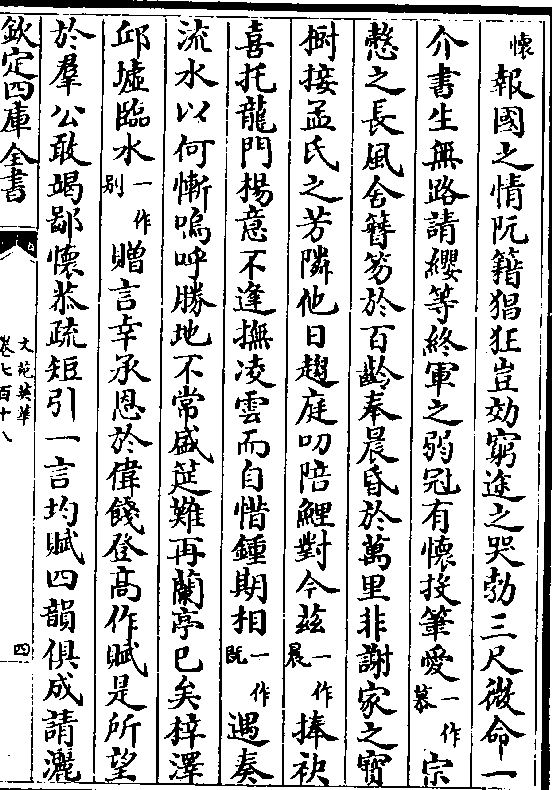 懷報國之情阮籍猖狂豈効窮途之哭勃三尺微命一
介書生無路請纓等終軍之弱冠有懷投筆愛一作慕宗
慤之長風舍簪笏於百齡奉晨昏於萬里非謝家之寶
樹接孟氏之芳隣他日趨庭叨陪鯉對今兹一作晨捧袂
喜托龍門楊意不逢撫凌雲而自惜鍾期相一作既遇奏
流水以何慚嗚呼勝地不常盛筵難再蘭亭已矣梓澤
邱墟臨水一作别贈言幸承恩於偉餞登髙作賦是所望
於羣公敢竭鄙懷恭疏短引一言均賦四韻俱成請灑
欽定四庫全書
文苑英華
卷七百十八
四